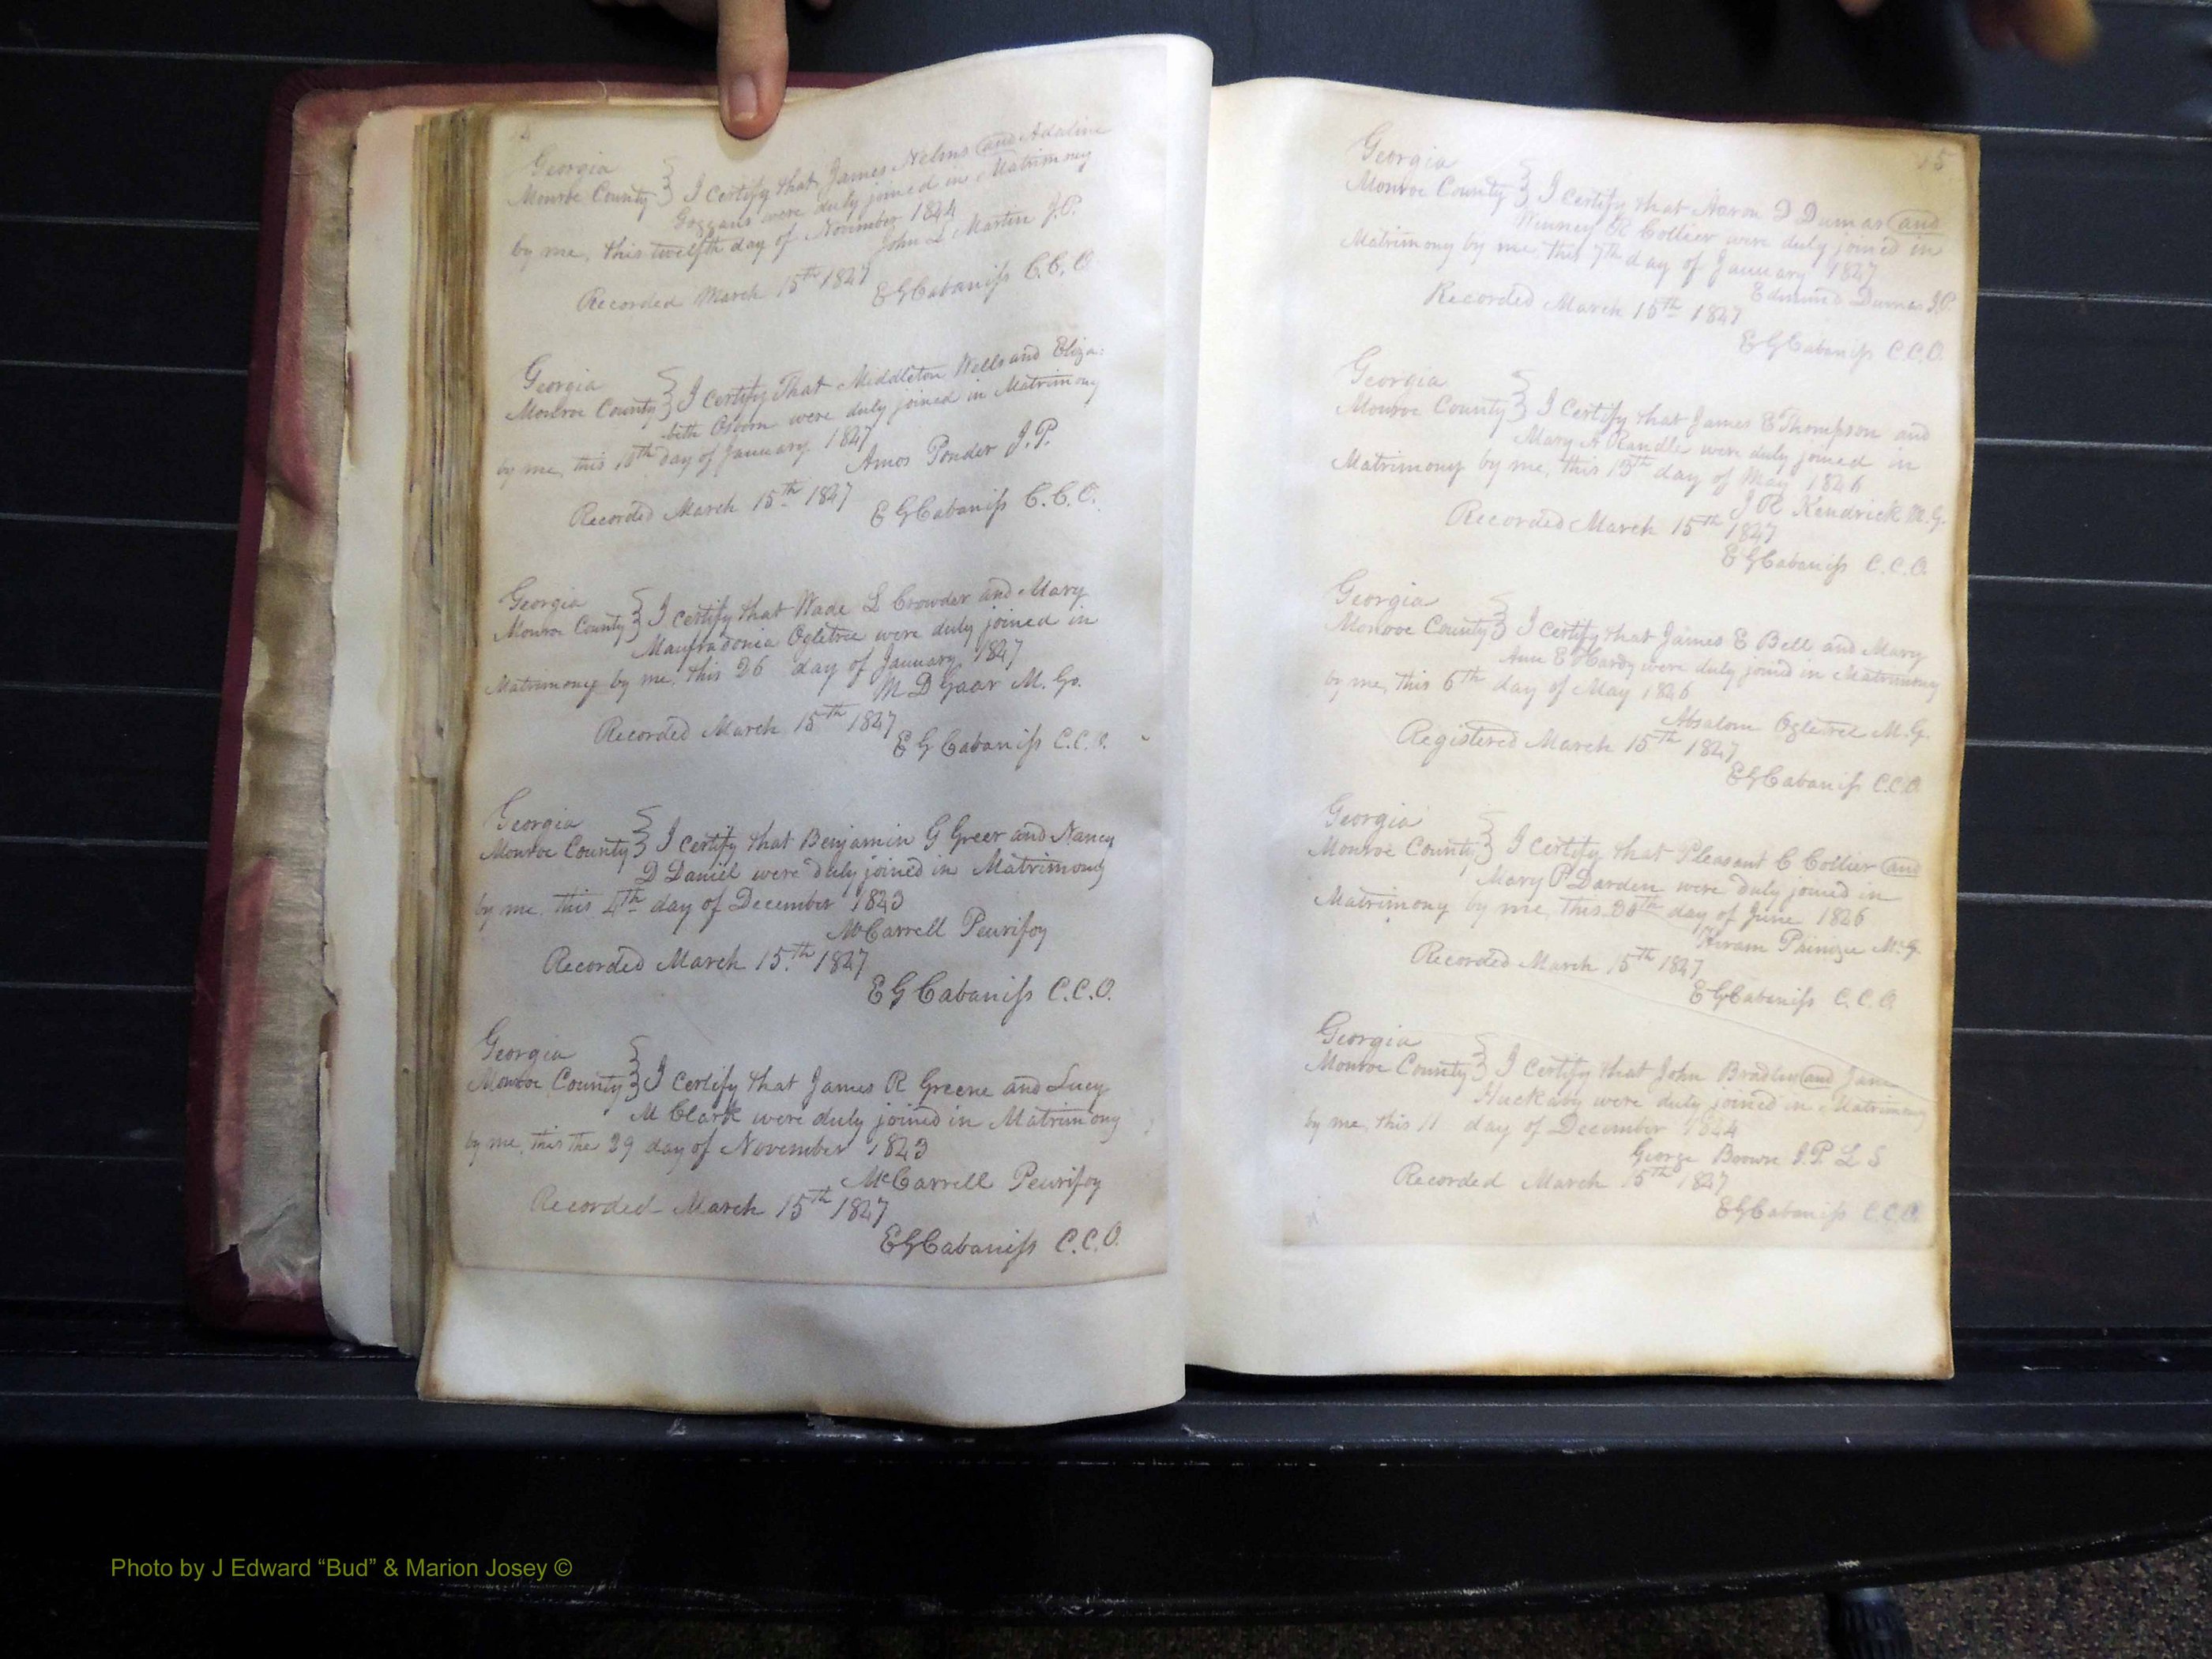 Georgia
Monroe County } I certify that James Nelms and Adaline
Goggans were duly joined in Matrimony
by me, this twelfth day of November 1844
John L Martin J.P.
Recorded March 15th 1847
E G Cabaniss C.C.O.
Georgia
Monroe County } I certify That Middleton Wells and Eliza:
beth Osborn were duly joined in Matrimony
by me, this 10th day of January 1847
Amos Ponder J.P.
Recorded March 15th 1847
E G Cabaniss C.C.O.
Georgia
Monroe County } I certify that Wade L Crowder and Mary
Manfradonia Ogletree were duly joined in
Matrimony by me, this 26 day of January 1847
M D Gaar M. G.
Recorded March 15th 1847
E G Cabaniss C.C.O.
Georgia
Monroe County } I certify that Benjamin G Greer and Nancy
D Daniel were duly joined in Matrimony
by me, this 4th day of December 1843
McCarrell Peurifoy
Recorded March 15th 1847
E G Cabaniss C.C.O.
Georgia
Monroe County } I certify that James R Greene and Lucy
M Clark were duly joined in Matrimony
by me, this the 29 day of November 1843
McCarrell Peurifoy
Recorded March 15th 1847
E G Cabaniss C.C.O.
15
Georgia
Monroe County } I certify that Aaron D Dumas and
Winney R Collier were duly joined in
Matrimony by me, this 7th day of January 1847
Edmund Dumas J.P.
Recorded March 15th 1847
E G Cabaniss C.C.O.
Georgia
Monroe County } I Certify that James E Thompson and
Mary A Randle were duly joined in
Matrimony by me, this 13th day of May 1846
J R Kendrick M.G.
Recorded March 15th 1847
E G Cabaniss C.C.O.
Georgia
Monroe County } I Certify that James E Bell and Mary
Ann E Hardy were duly joined in Matrimony
by me, this 6th day of May 1846
Absalom Ogletree M.G.
Registered March 15th 1847
E G Cabaniss C.C.O.
Georgia
Monroe County } I certify that Pleasant C Collier and
Mary P Darden were duly joined in
Matrimony by me, this day of June 1846
Hiram M.G.
Recorded March 15th 1847
E G Cabaniss C.C.O.
Georgia
Monroe County } I certify that John Bradley and Jane
Huckaby were duly joined in Matrimony
by me, this 11 day of December 1844
George Brown J.P. L S
Recorded March 15th 1847
E G Cabaniss C.C.O.
Photo by J Edward “Bud” & Marion Josey ©